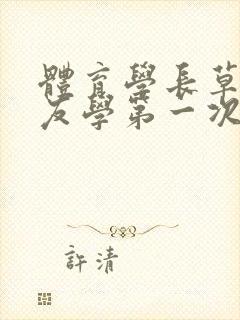 體育學長草
友學第一次
許清